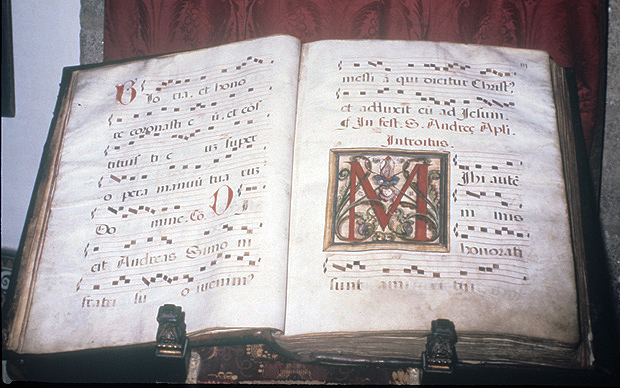 G lo ria, et hono
re coronasti e ū, et cōs
tituis ti e uz super
opera manuū tua ruz
Do mine. Co. D i
cit Andreas Simo ni
fratri su o
messiā qui dicitur Christꝰ
et adduxit eū ad Iesum.
In fest. S. Andreę Apli.
Introitus.
M Ihi autē
ni mis
honorati
sunt ami ci tui